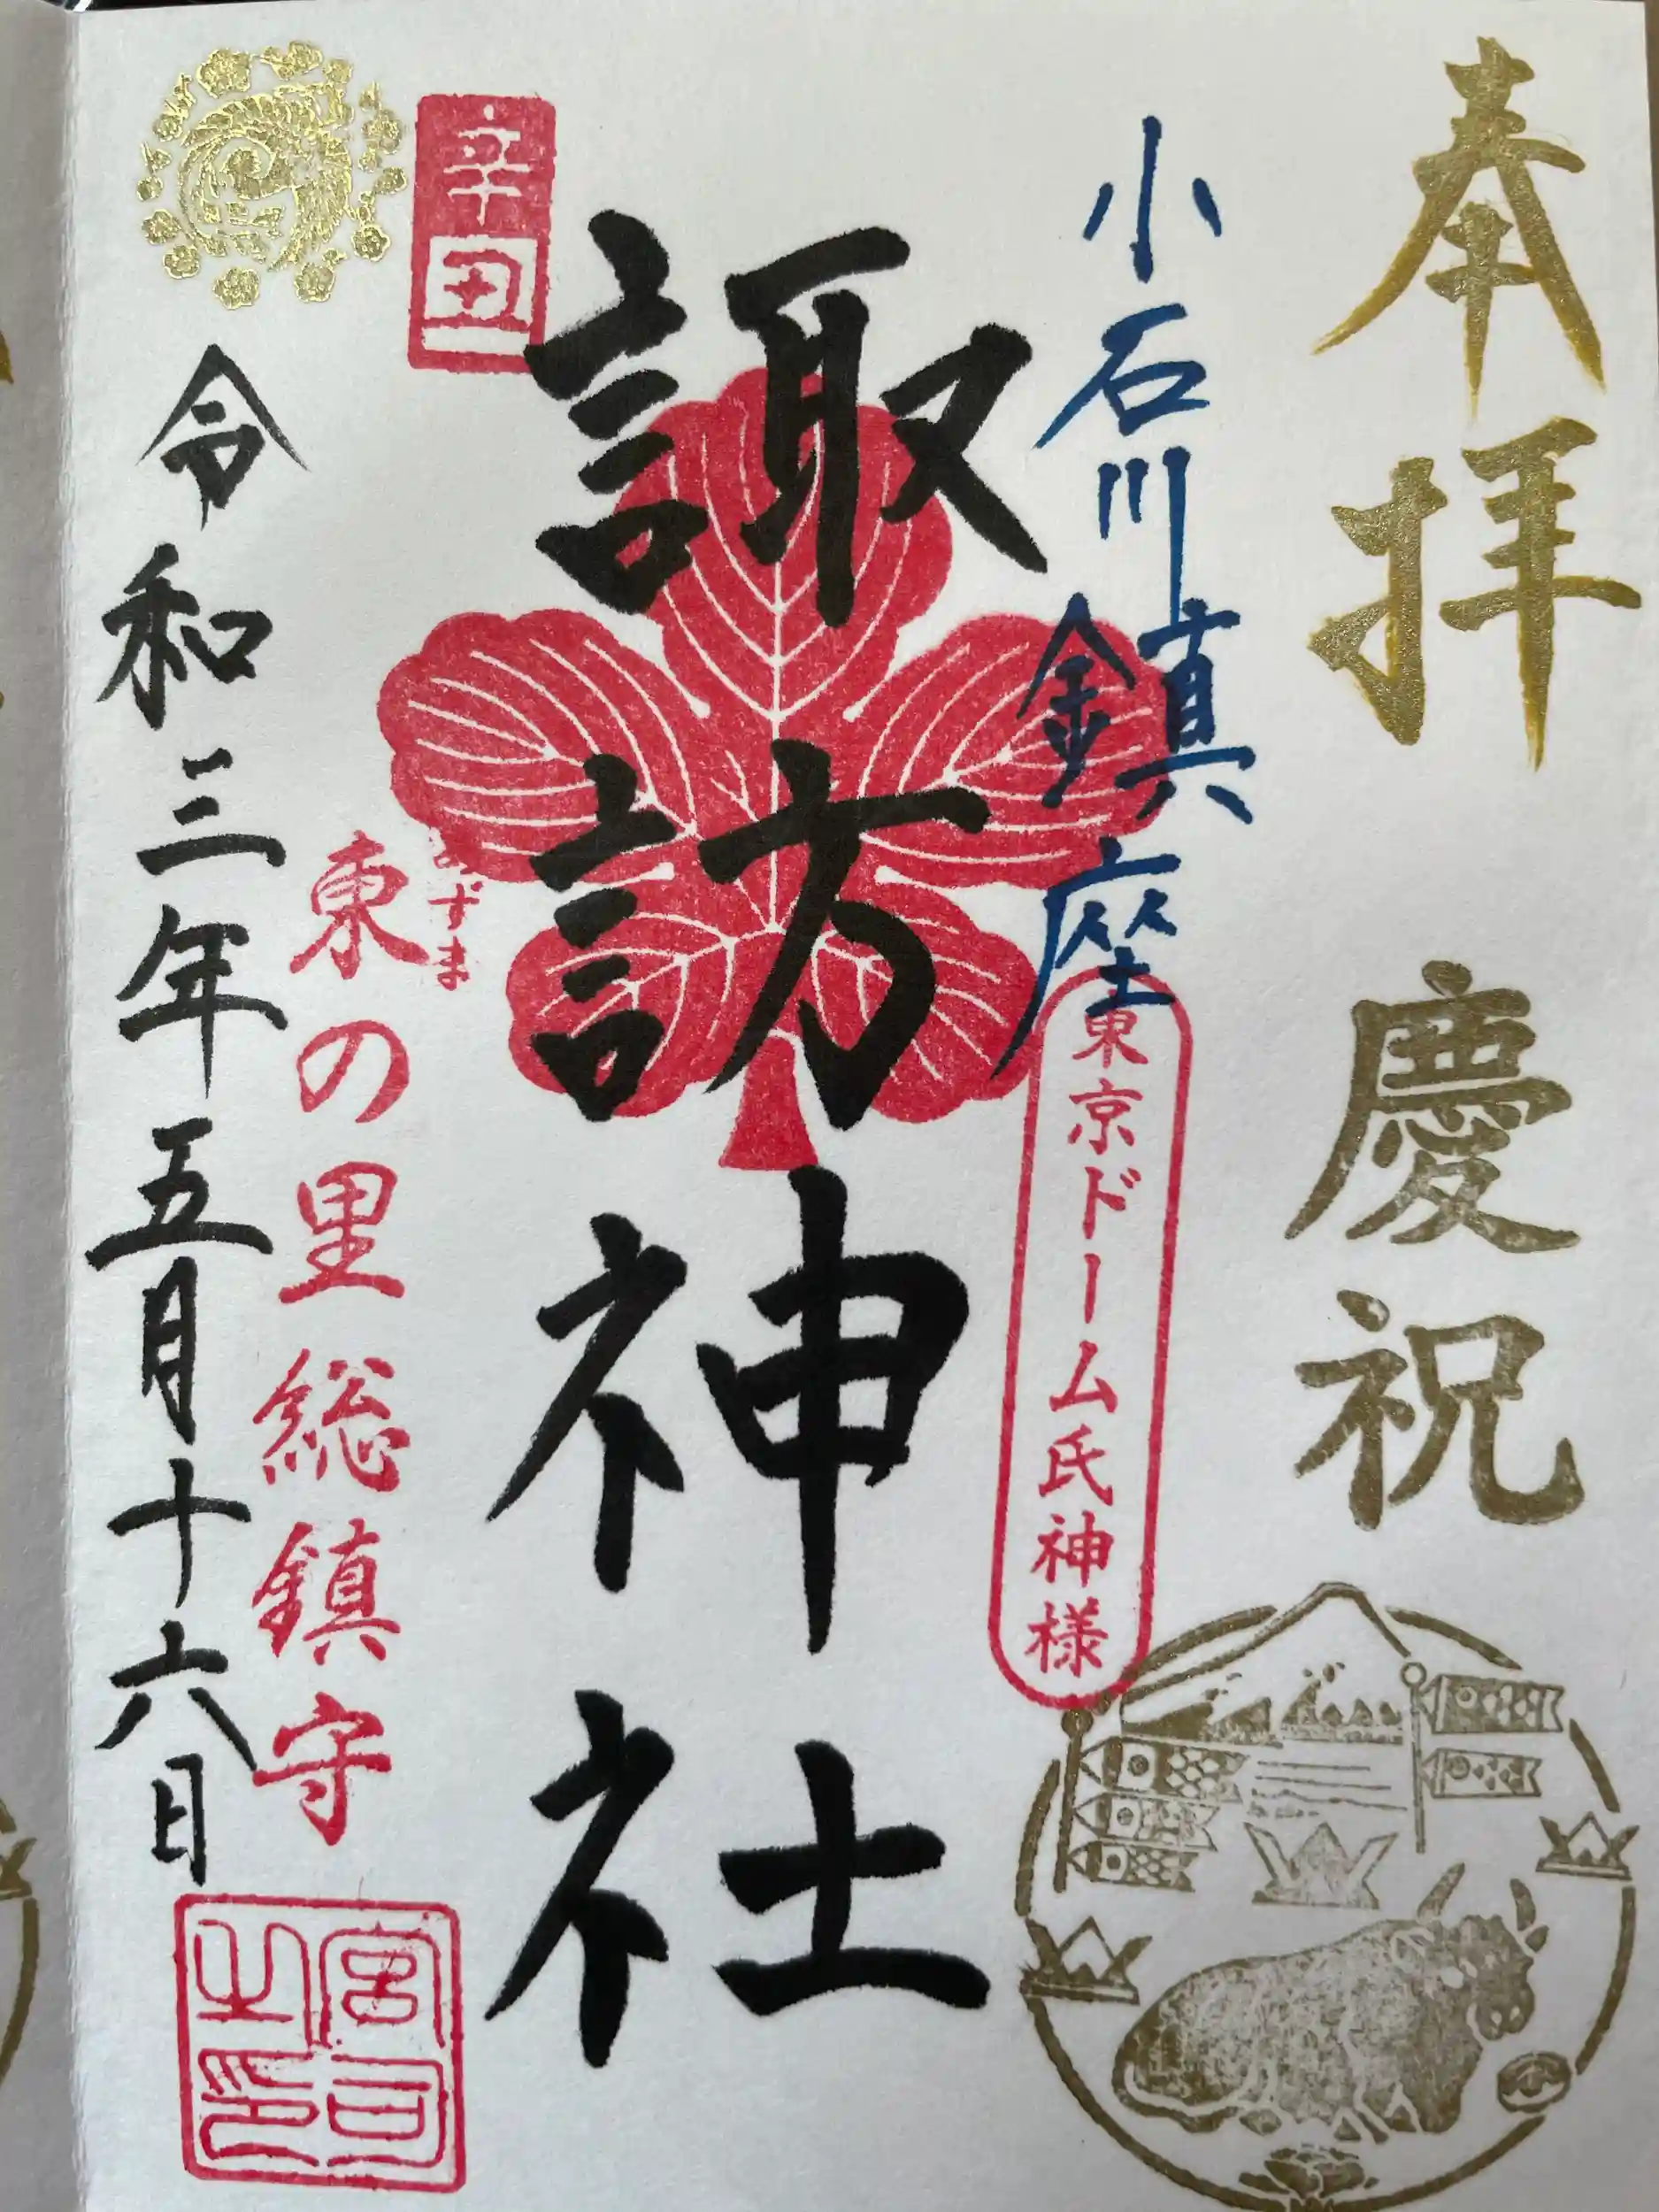 奉拝
慶祝
小石川鎮座
東京ドーム氏神様
諏訪神社
辛丑
あずま
東の里総鎮守
令和三年五月十六日
宮司
之印